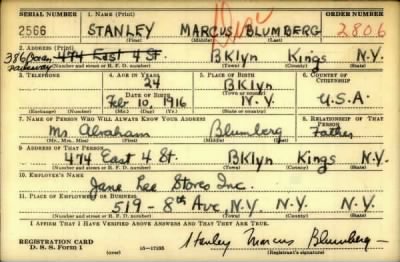 SERIAL NUMBER 1. NAME (Print) ORDER NUMBER
2566 STANLEY MARCUS BLUMBERG 2806
(First) (Middle) (Last)
2. ADDRESS (Print)
386 Ocean Parkway 474 East 4 St. BKlyn Kings N.Y.
(Number and street or R. F. D. number) (Town) (County) (State)
3. TELEPHONE 4. AGE IN YEARS 5. PLACE OF BIRTH 6. COUNTRY OF CITIZENSHIP
24 BKlyn
DATE OF BIRTH (Town or county)
Feb 10, 1916 N.Y. U.S.A.
(Exchange) (Number) (Mo.) (Day) (Yr.) (State or country)
7. NAME OF PERSON WHO WILL ALWAYS KNOW YOUR ADDRESS 8. RELATIONSHIP OF THAT PERSON
Mr. Abraham Blumberg Father
(Mr., Mrs., Miss) (First) (Middle) (Last)
9. ADDRESS OF THAT PERSON
474 East 4 St. BKlyn Kings N.Y.
(Number and street or R. F. D. number) (Town) (County) (State)
10. EMPLOYER'S NAME
Jane Lee Stores Inc.
11. PLACE OF EMPLOYMENT OR BUSINESS
519 - 8th Ave, N.Y N.Y. N.Y.
(Number and street or R. F. D. number) (Town) (County) (State)
I AFFIRM THAT I HAVE VERIFIED ABOVE ANSWERS AND THAT THEY ARE TRUE.
REGISTRATION CARD
D. S. S. Form 1 (over) 16-17105 Stanley Marcus Blumberg
(Registrant's signature)